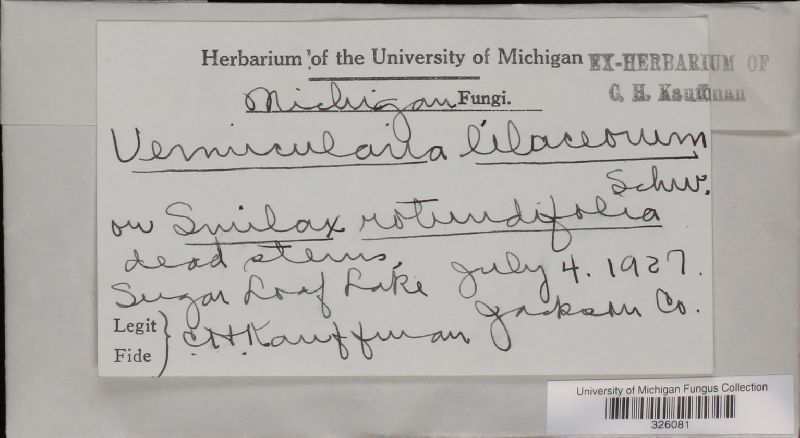 Herbarium of the University of Michigan EX-HERBARIUM OF
Michigan Fungi. C. H. Kauffman
Vermicularia liliaceorum
Schw.
on Smilax rotundifolia
dead stems,
Sugar Loaf Lake July 4. 1927.
Jackson Co.
Legit
Fide } C.H. Kauffman
University of Michigan Fungus Collection
326081